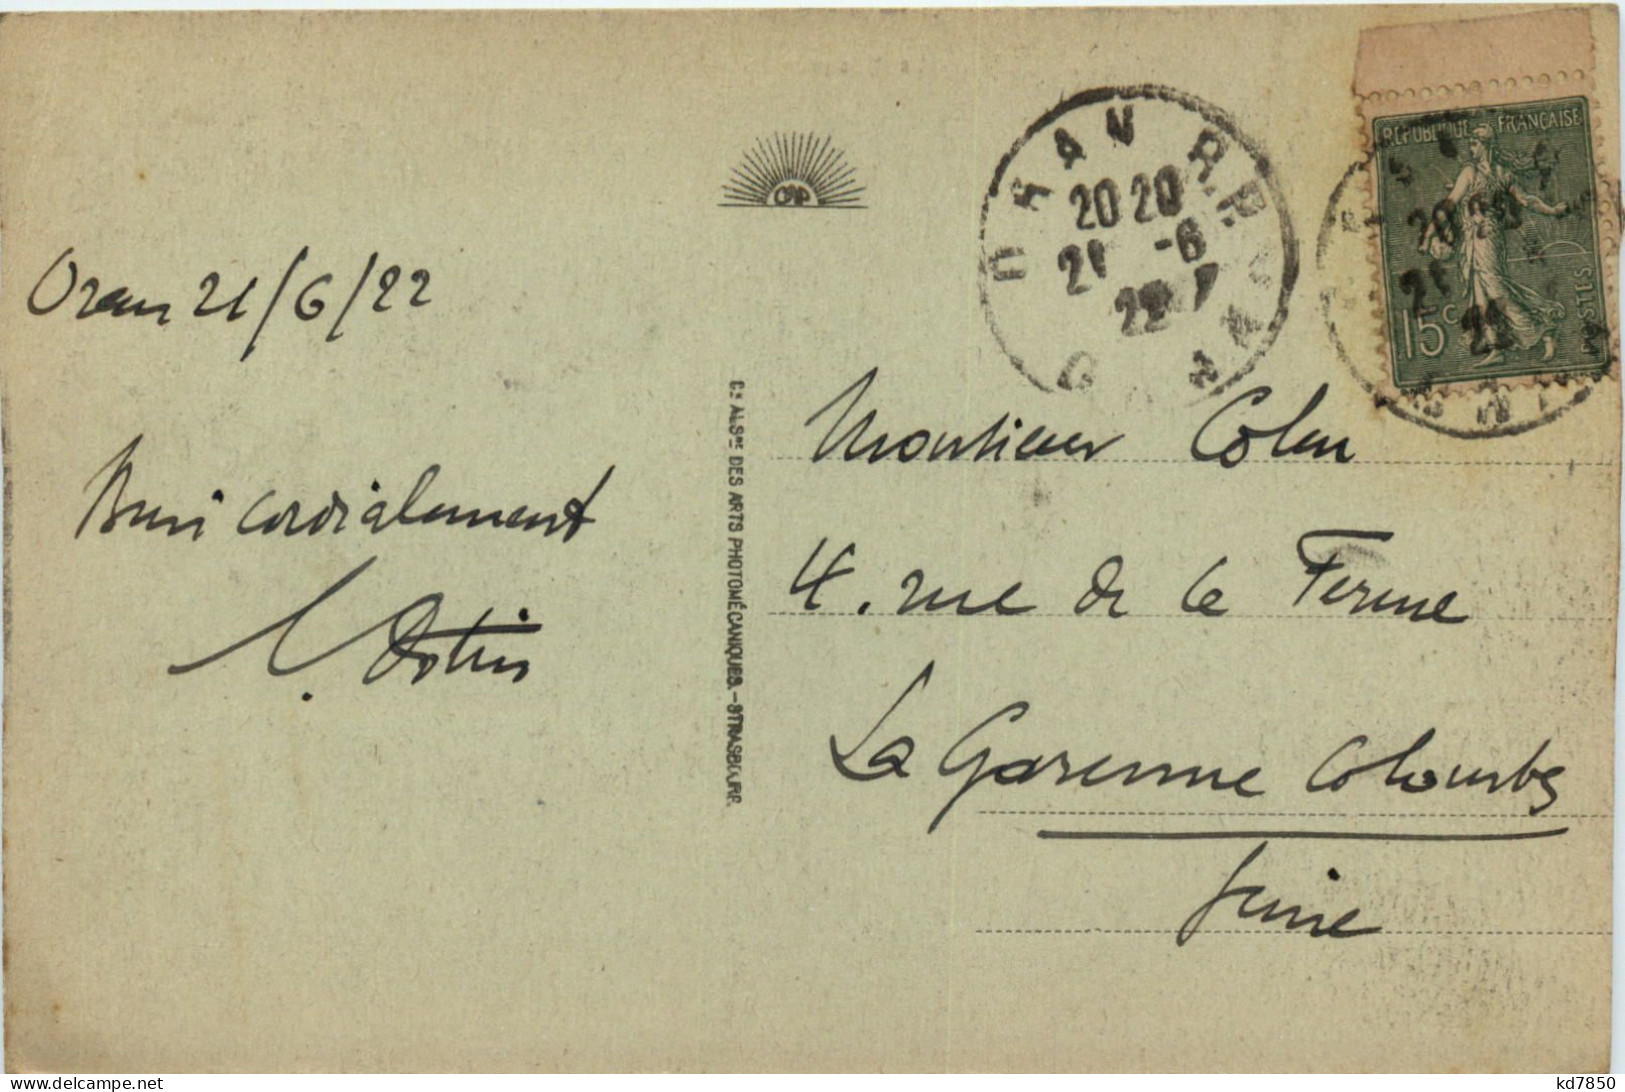 Oran 21/6/22
Bien cordialement
Cie ALSne DES ARTS PHOTOMÉCANIQUES.-STRASBOURG
CAP
ORAN R.P.
20 20
21 -6
22
RÉPUBLIQUE FRANÇAISE
15c
POSTES
20 20
21
22
Monsieur Colin
4. rue de la Ferme
La Garenne Colombes
Seine
kd7850